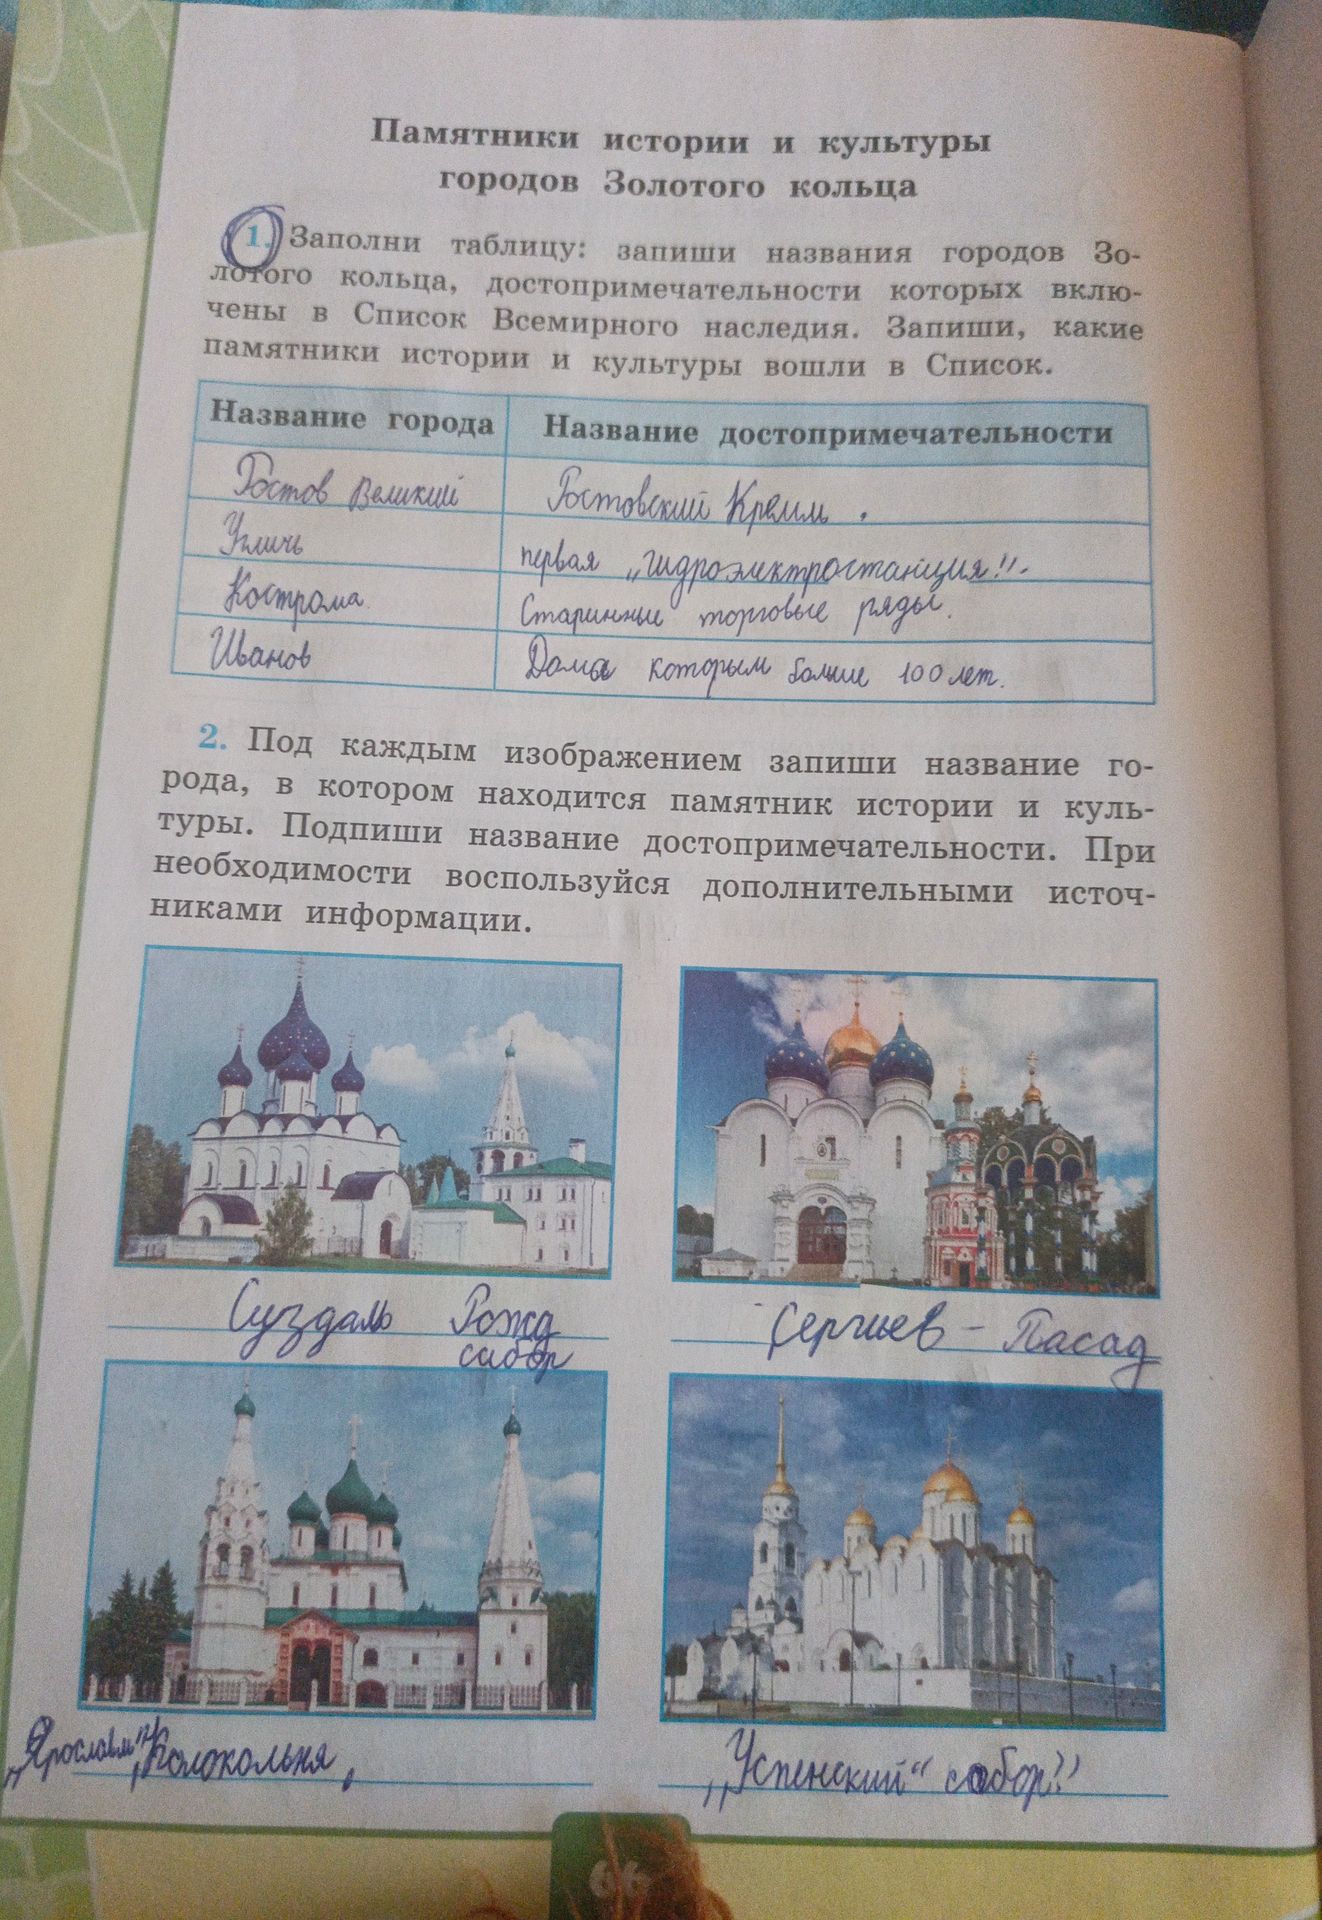 Памятники истории и культуры
городов Золотого кольца
1. Заполни таблицу: запиши названия городов Зо-
лотого кольца, достопримечательности которых вклю-
чены в Список Всемирного наследия. Запиши, какие
памятники истории и культуры вошли в Список.
Название города Название достопримечательности
Ростов Великий Ростовский Кремль.
Угличь первая „гидроэлектростанция!!".
Кострома. Старинные торговые ряды.
Иванов Дома которым больше 100 лет.
2. Под каждым изображением запиши название го-
рода, в котором находится памятник истории и куль-
туры. Подпиши название достопримечательности. При
необходимости воспользуйся дополнительными источ-
никами информации.
Суздаль Рожд
сабор
Сергиев - Пасад
„Ярославль" „Колокольня„
„Успенский" собор?"
66